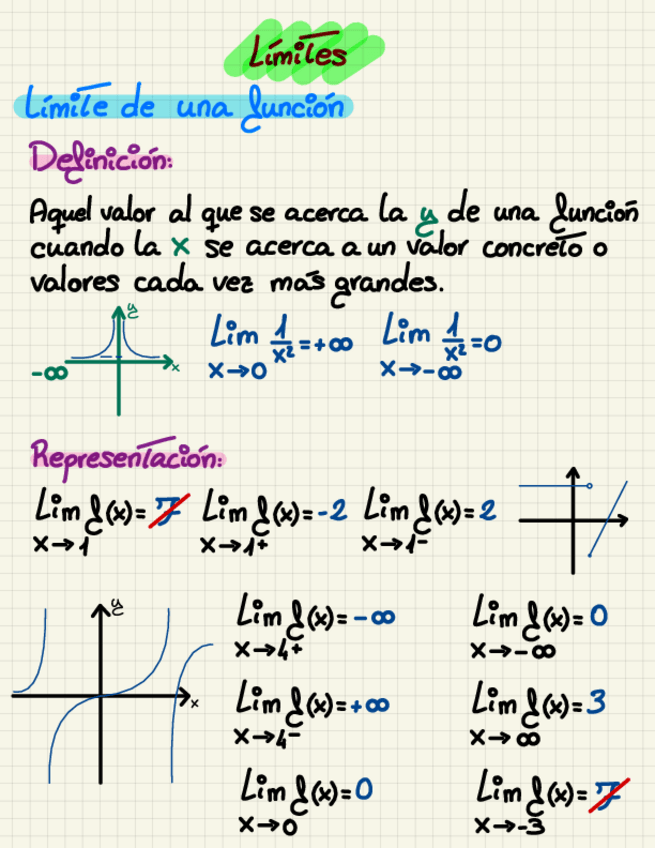 Límites
Límite de una función
Definición:
Aquel valor al que se acerca la y de una función
cuando la x se acerca a un valor concreto o
valores cada vez más grandes.
y
x
-∞
Lim 1/x² = +∞
x→0
Lim 1/x² = 0
x→-∞
Representación:
Lim f(x) = ∄
x→1
Lim f(x) = -2
x→1⁺
Lim f(x) = 2
x→1⁻
y
x
Lim f(x) = -∞
x→4⁺
Lim f(x) = 0
x→-∞
Lim f(x) = +∞
x→4⁻
Lim f(x) = 3
x→∞
Lim f(x) = 0
x→0
Lim f(x) = ∄
x→-3